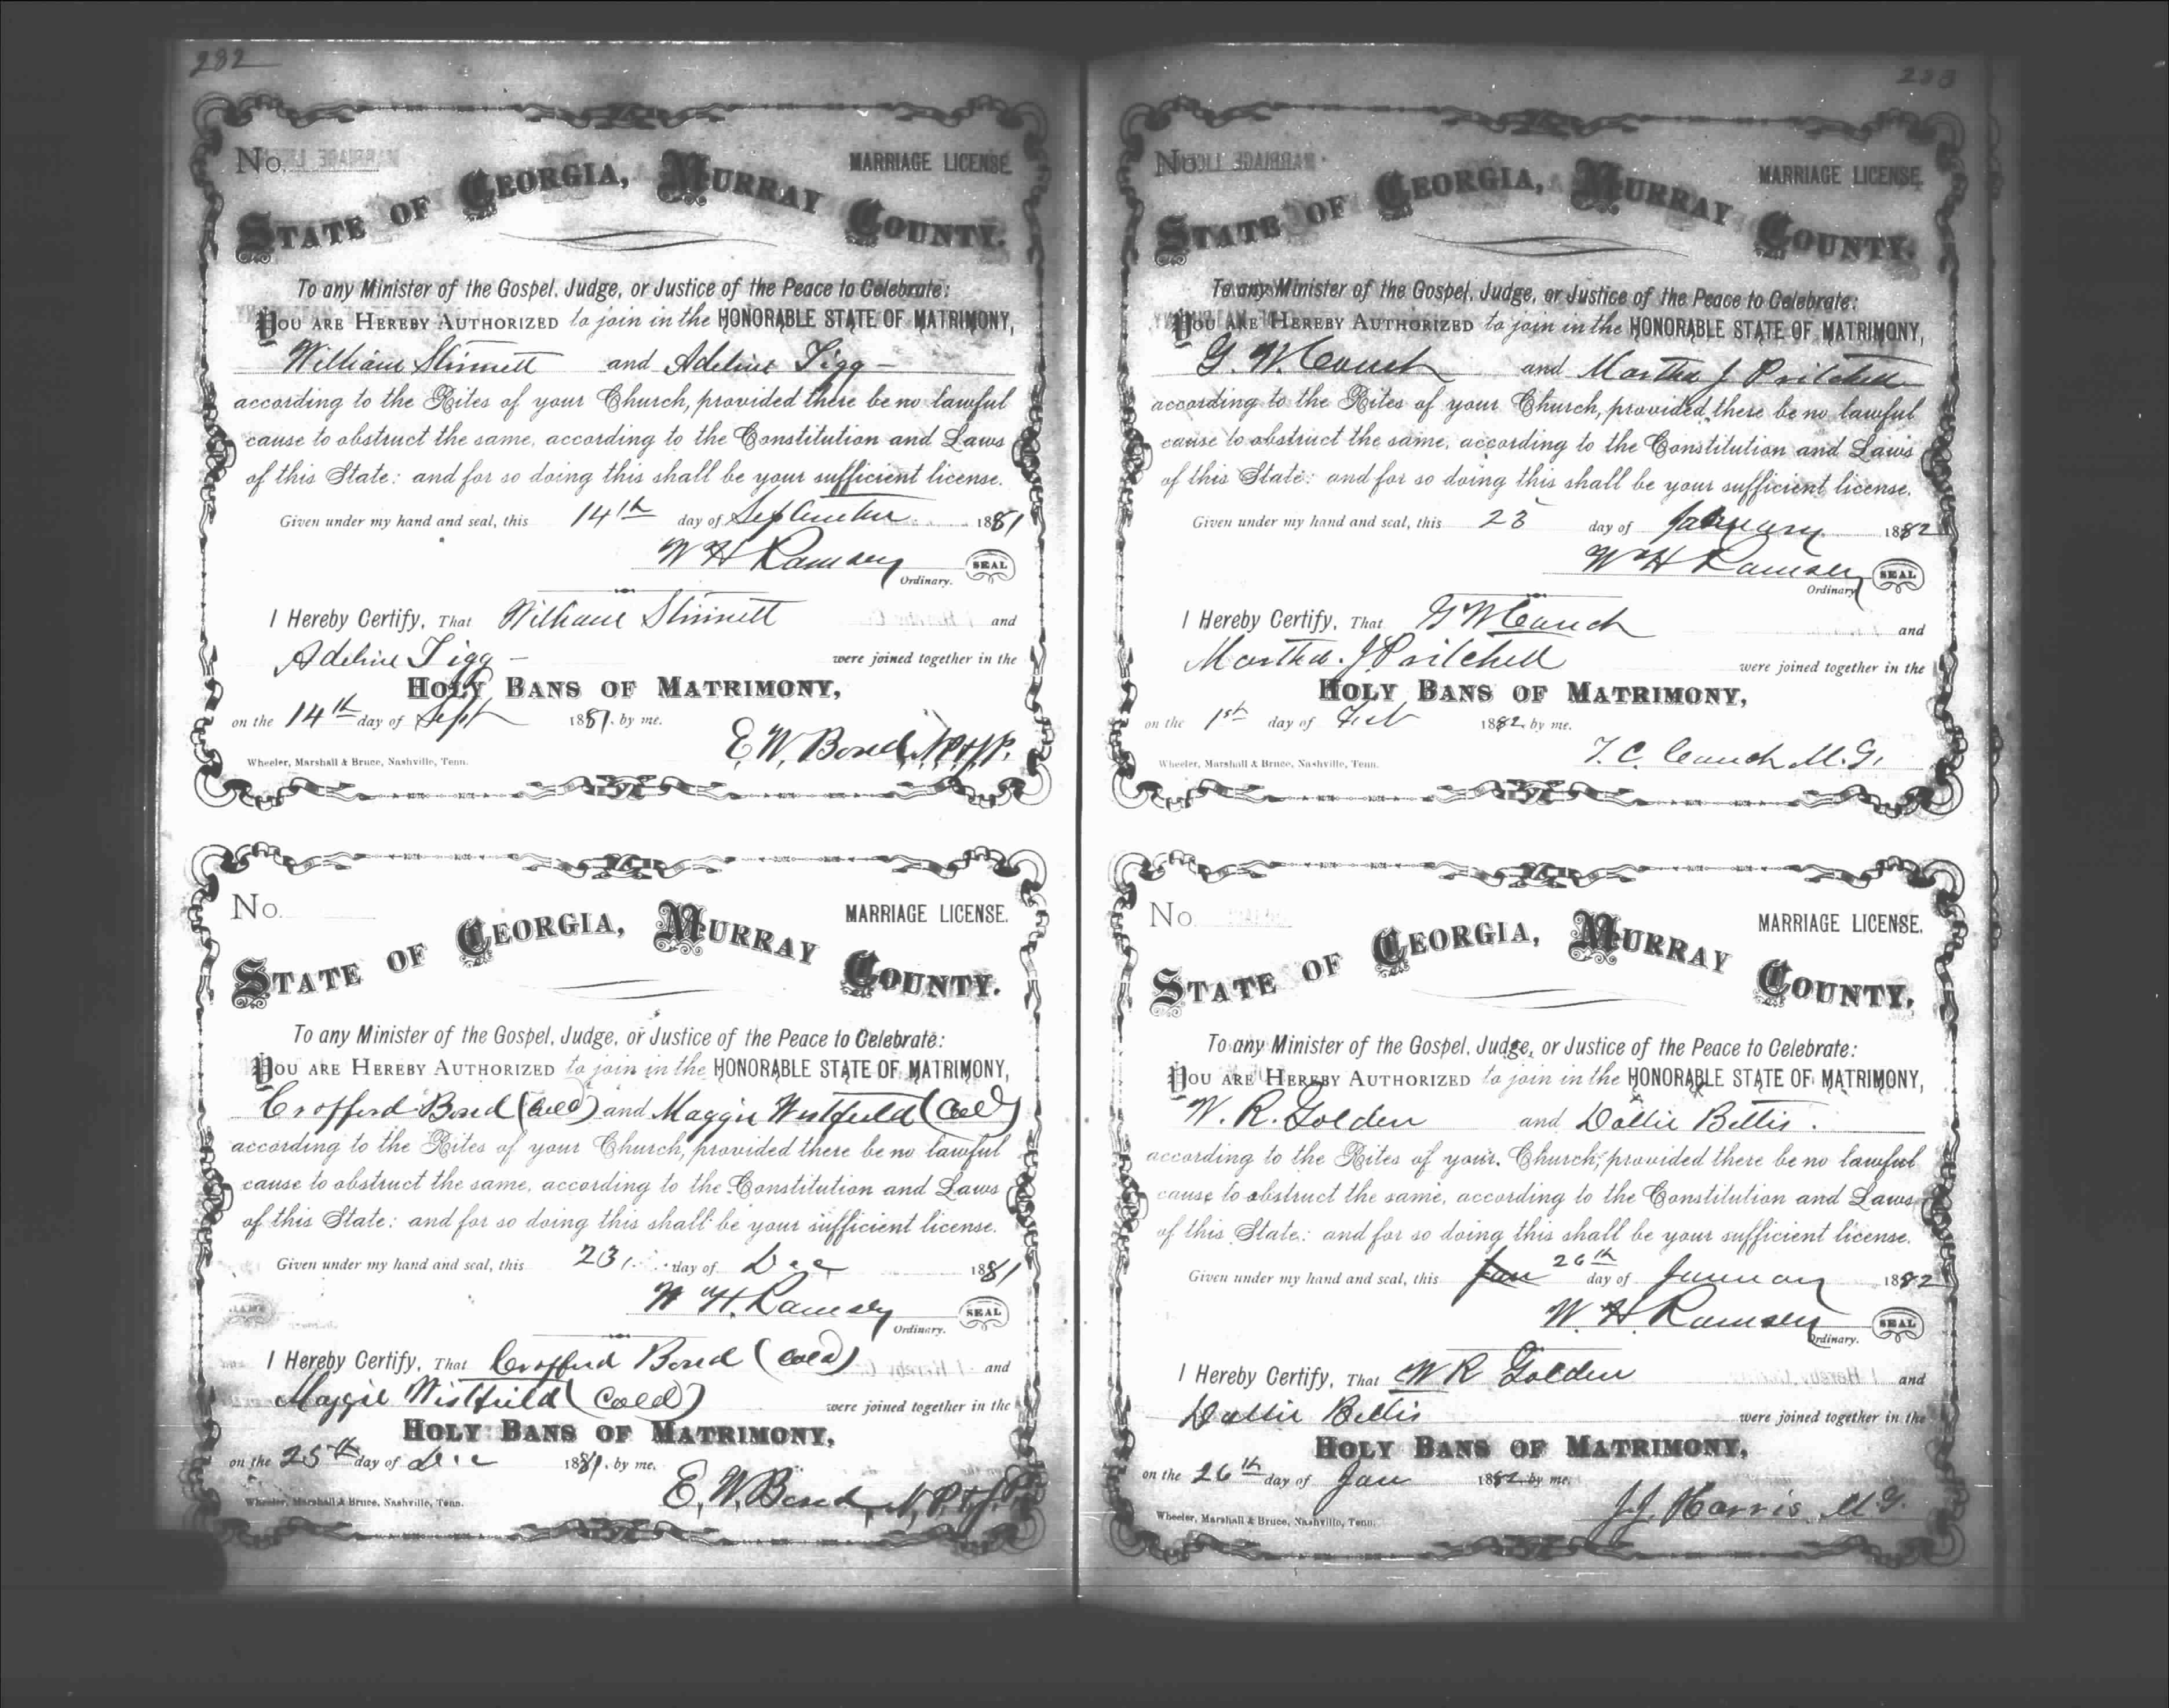 282
No.
MARRIAGE LICENSE
STATE OF GEORGIA, MURRAY COUNTY.
To any Minister of the Gospel, Judge, or Justice of the Peace to Celebrate:
YOU ARE HEREBY AUTHORIZED to join in the HONORABLE STATE OF MATRIMONY,
William Stinnett and Adeline Tigg
according to the Rites of your Church, provided there be no lawful
cause to obstruct the same, according to the Constitution and Laws
of this State: and for so doing this shall be your sufficient license.
Given under my hand and seal, this 14th day of September 1881
W H Ramsey SEAL
Ordinary.
I Hereby Certify, That William Stinnett and
Adeline Tigg were joined together in the
HOLY BANS OF MATRIMONY,
on the 14th day of Sept 1881. by me.
E. W. Bond, N.P.&J.P.
Wheeler, Marshall & Bruce, Nashville, Tenn.
No.
MARRIAGE LICENSE.
STATE OF GEORGIA, MURRAY COUNTY.
To any Minister of the Gospel, Judge, or Justice of the Peace to Celebrate:
YOU ARE HEREBY AUTHORIZED to join in the HONORABLE STATE OF MATRIMONY,
Crofford Bond (Cold) and Maggie Westfield (Cold)
according to the Rites of your Church, provided there be no lawful
cause to obstruct the same, according to the Constitution and Laws
of this State: and for so doing this shall be your sufficient license.
Given under my hand and seal, this 23 day of Dec 1881
W H. Ramsey SEAL
Ordinary.
I Hereby Certify, That Crofford Bond (Cold) and
Maggie Westfield (Cold) were joined together in the
HOLY BANS OF MATRIMONY,
on the 25th day of Dec 1881. by me.
E. W. Bond, N.P.&J.P.
Wheeler, Marshall & Bruce, Nashville, Tenn.
283
No.
MARRIAGE LICENSE
STATE OF GEORGIA, MURRAY COUNTY.
To any Minister of the Gospel, Judge, or Justice of the Peace to Celebrate:
YOU ARE HEREBY AUTHORIZED to join in the HONORABLE STATE OF MATRIMONY,
G. W. Couch and Martha J Pritchett
according to the Rites of your Church, provided there be no lawful
cause to obstruct the same, according to the Constitution and Laws
of this State: and for so doing this shall be your sufficient license.
Given under my hand and seal, this day of January 1882
W H Ramsey SEAL
Ordinary
I Hereby Certify, That G W Couch and
Martha. J Pritchett were joined together in the
HOLY BANS OF MATRIMONY,
on the 1st day of Feb 1882. by me.
T. C. Couch M. G.
Wheeler, Marshall & Bruce, Nashville, Tenn.
No.
MARRIAGE LICENSE.
STATE OF GEORGIA, MURRAY COUNTY.
To any Minister of the Gospel, Judge, or Justice of the Peace to Celebrate:
YOU ARE HEREBY AUTHORIZED to join in the HONORABLE STATE OF MATRIMONY,
W. R. Golden and Dollie Bettis.
according to the Rites of your Church, provided there be no lawful
cause to obstruct the same, according to the Constitution and Laws
of this State: and for so doing this shall be your sufficient license.
Given under my hand and seal, this Jan 26th day of January 1882
W. H. Ramsey SEAL
Ordinary.
I Hereby Certify, That W R Golden and
Dollie Bettis were joined together in the
HOLY BANS OF MATRIMONY,
on the 26th day of Jan 1882 by me.
J.J. Harris M.G.
Wheeler, Marshall & Bruce, Nashville, Tenn.